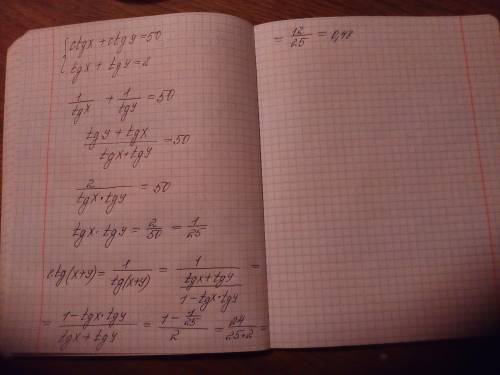 {ctgx + ctgy = 50
tgx + tgy = 2
1/tgx + 1/tgy = 50
(tgy + tgx)/(tgx·tgy) = 50
2/(tgx·tgy) = 50
tgx·tgy = 2/50 = 1/25
ctg(x+y) = 1/tg(x+y) = 1/((tgx+tgy)/(1-tgx·tgy)) =
= (1-tgx·tgy)/(tgx+tgy) = (1-1/25)/2 = 24/(25·2) =
= 12/25 = 0,48